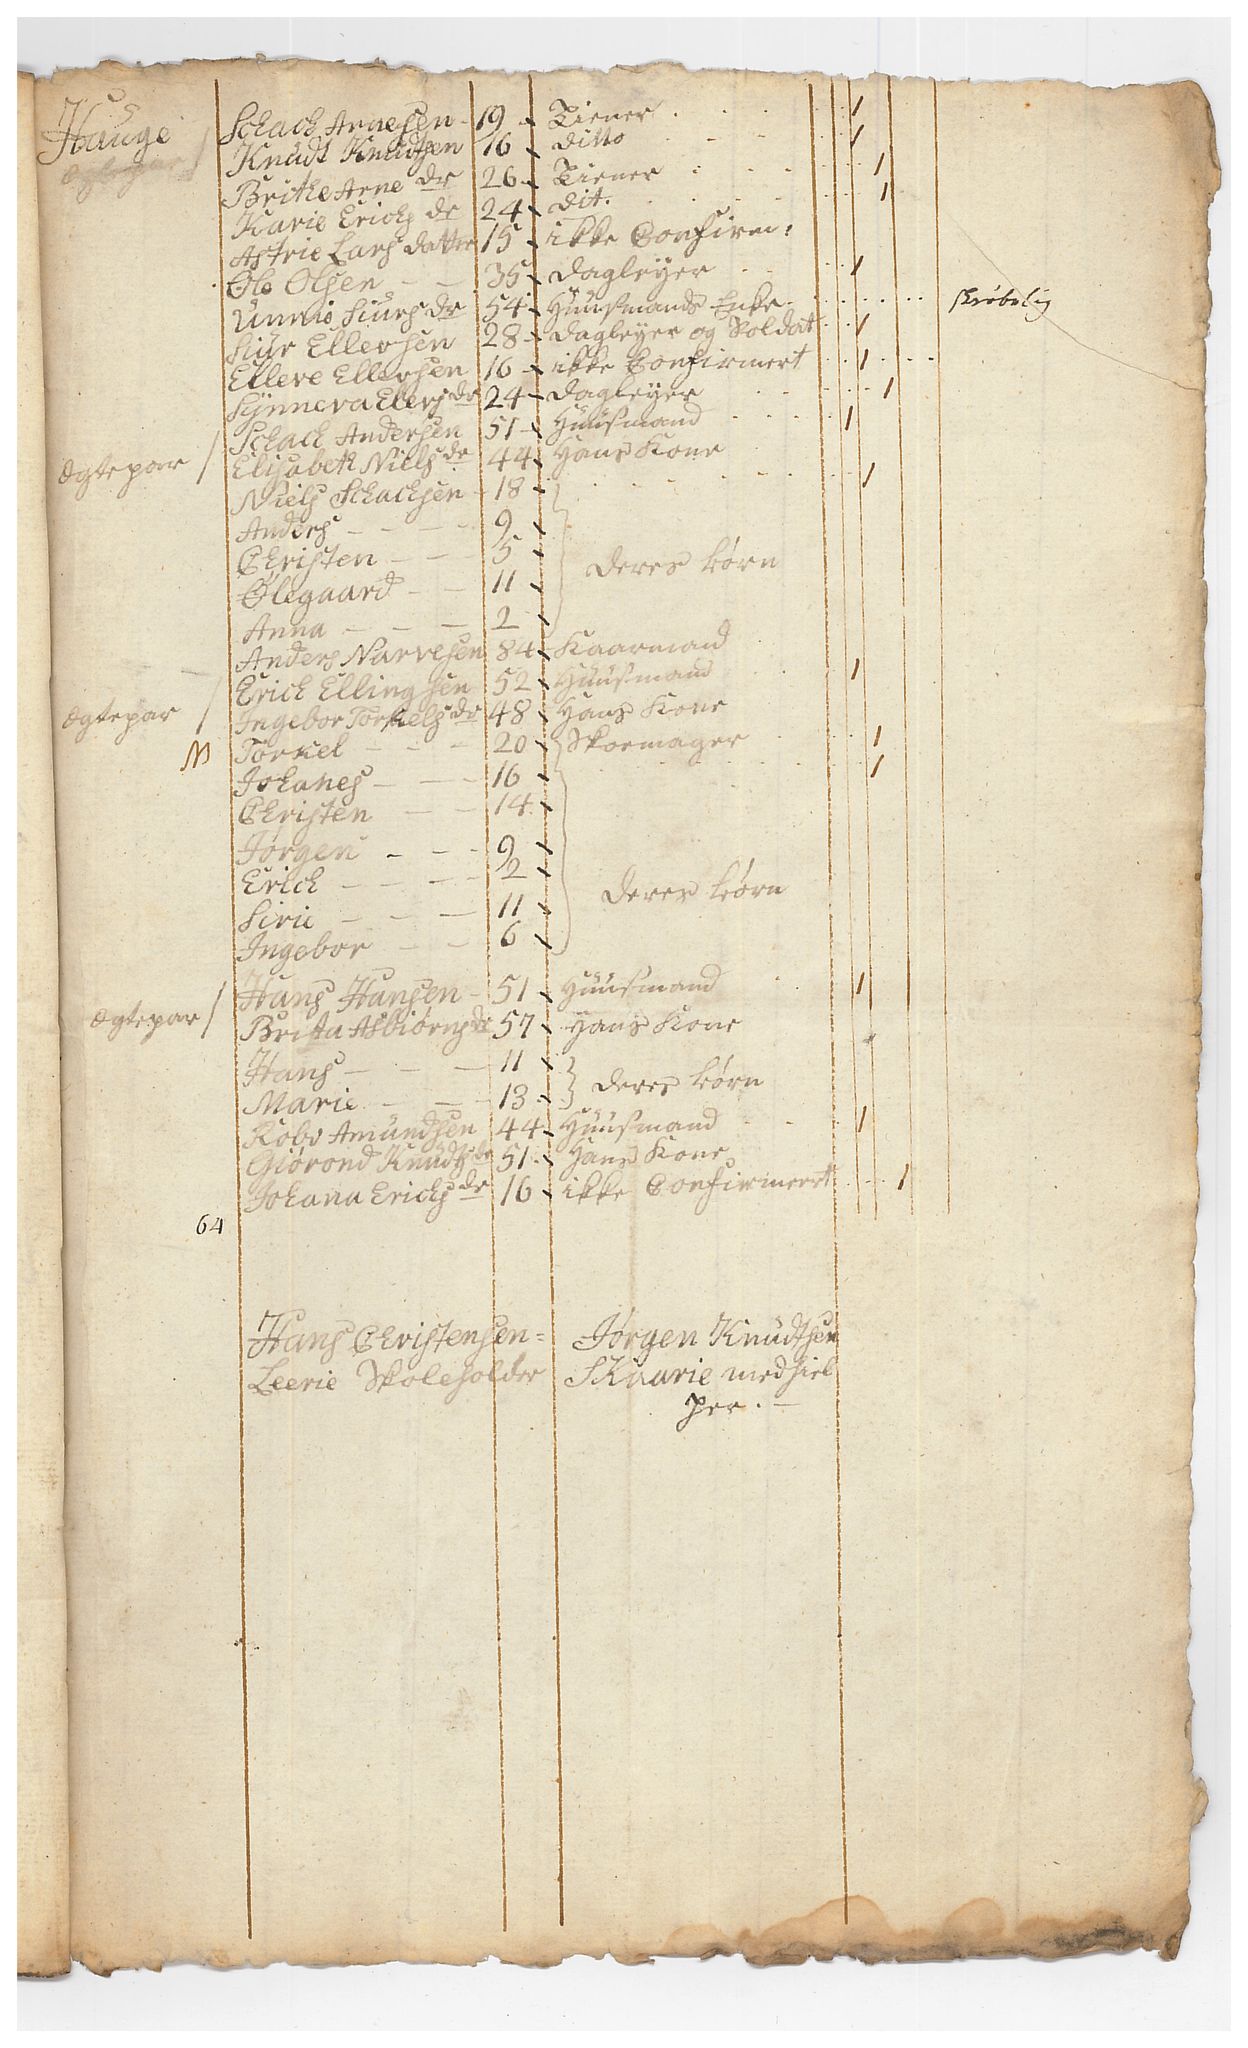 Hauge Schach Arnesen - 19 - Tiener 1
Knudt Knudtsen 16 - ditto 1
Brithe Arne dr 26 - Tiener 1
Karie Erichs dr 24 - dit. 1
Astrie Lars datter 15 - ikke Confirm:
Ole Olsen - - 35 - dagleyer 1
Unnie Siurs dr 54 - Huusmands Enke skrøbelig
Siur Ellersen 28 - dagleyer og Soldat 1
Ellere Ellersen 16 - ikke Confirmert 1
Synneva Ellers dr 24 - dagleyer 1
Schach Andersen 51 - Huusmand 1
Ægtepar / Elisabeth Niels dr 44 - Hans Kone
Niels Schachsen - 18 - 1
Anders - - - 9 -
Christen - - 5 -
deres børn
Ølegaard - - 11 -
Anna - - - 2 -
Anders Narvesen 84 - Kaarmand
Erich Ellingsen 52 - Huusmand 1
Ægtepar / Ingebor Torkels dr 48 - Hans Kone
M Torkel - - - 20 - Skoemager 1
Johanes - - - 16 - 1
Christen - - 14 -
Jørgen - - - 9 -
Erich - - - 2 -
deres børn
Sirie - - - 11 -
Ingebor - - 6 -
Hans Hansen - 51 - Huusmand 1
Ægtepar / Brita Asbiørns dr 57 - Hans Kone
Hans - - - 11 -
deres børn
Marie - - - 13 -
Robv Amundsen 44 - Huusmand 1
Giørond Knudts dr 51 - Hans Kone
Johana Erichs dr 16 - ikke Confirmert 1
64
Hans Christensen = Jørgen Knudtsen
Leerie Skoleholder Skaarie medhiel
per. -